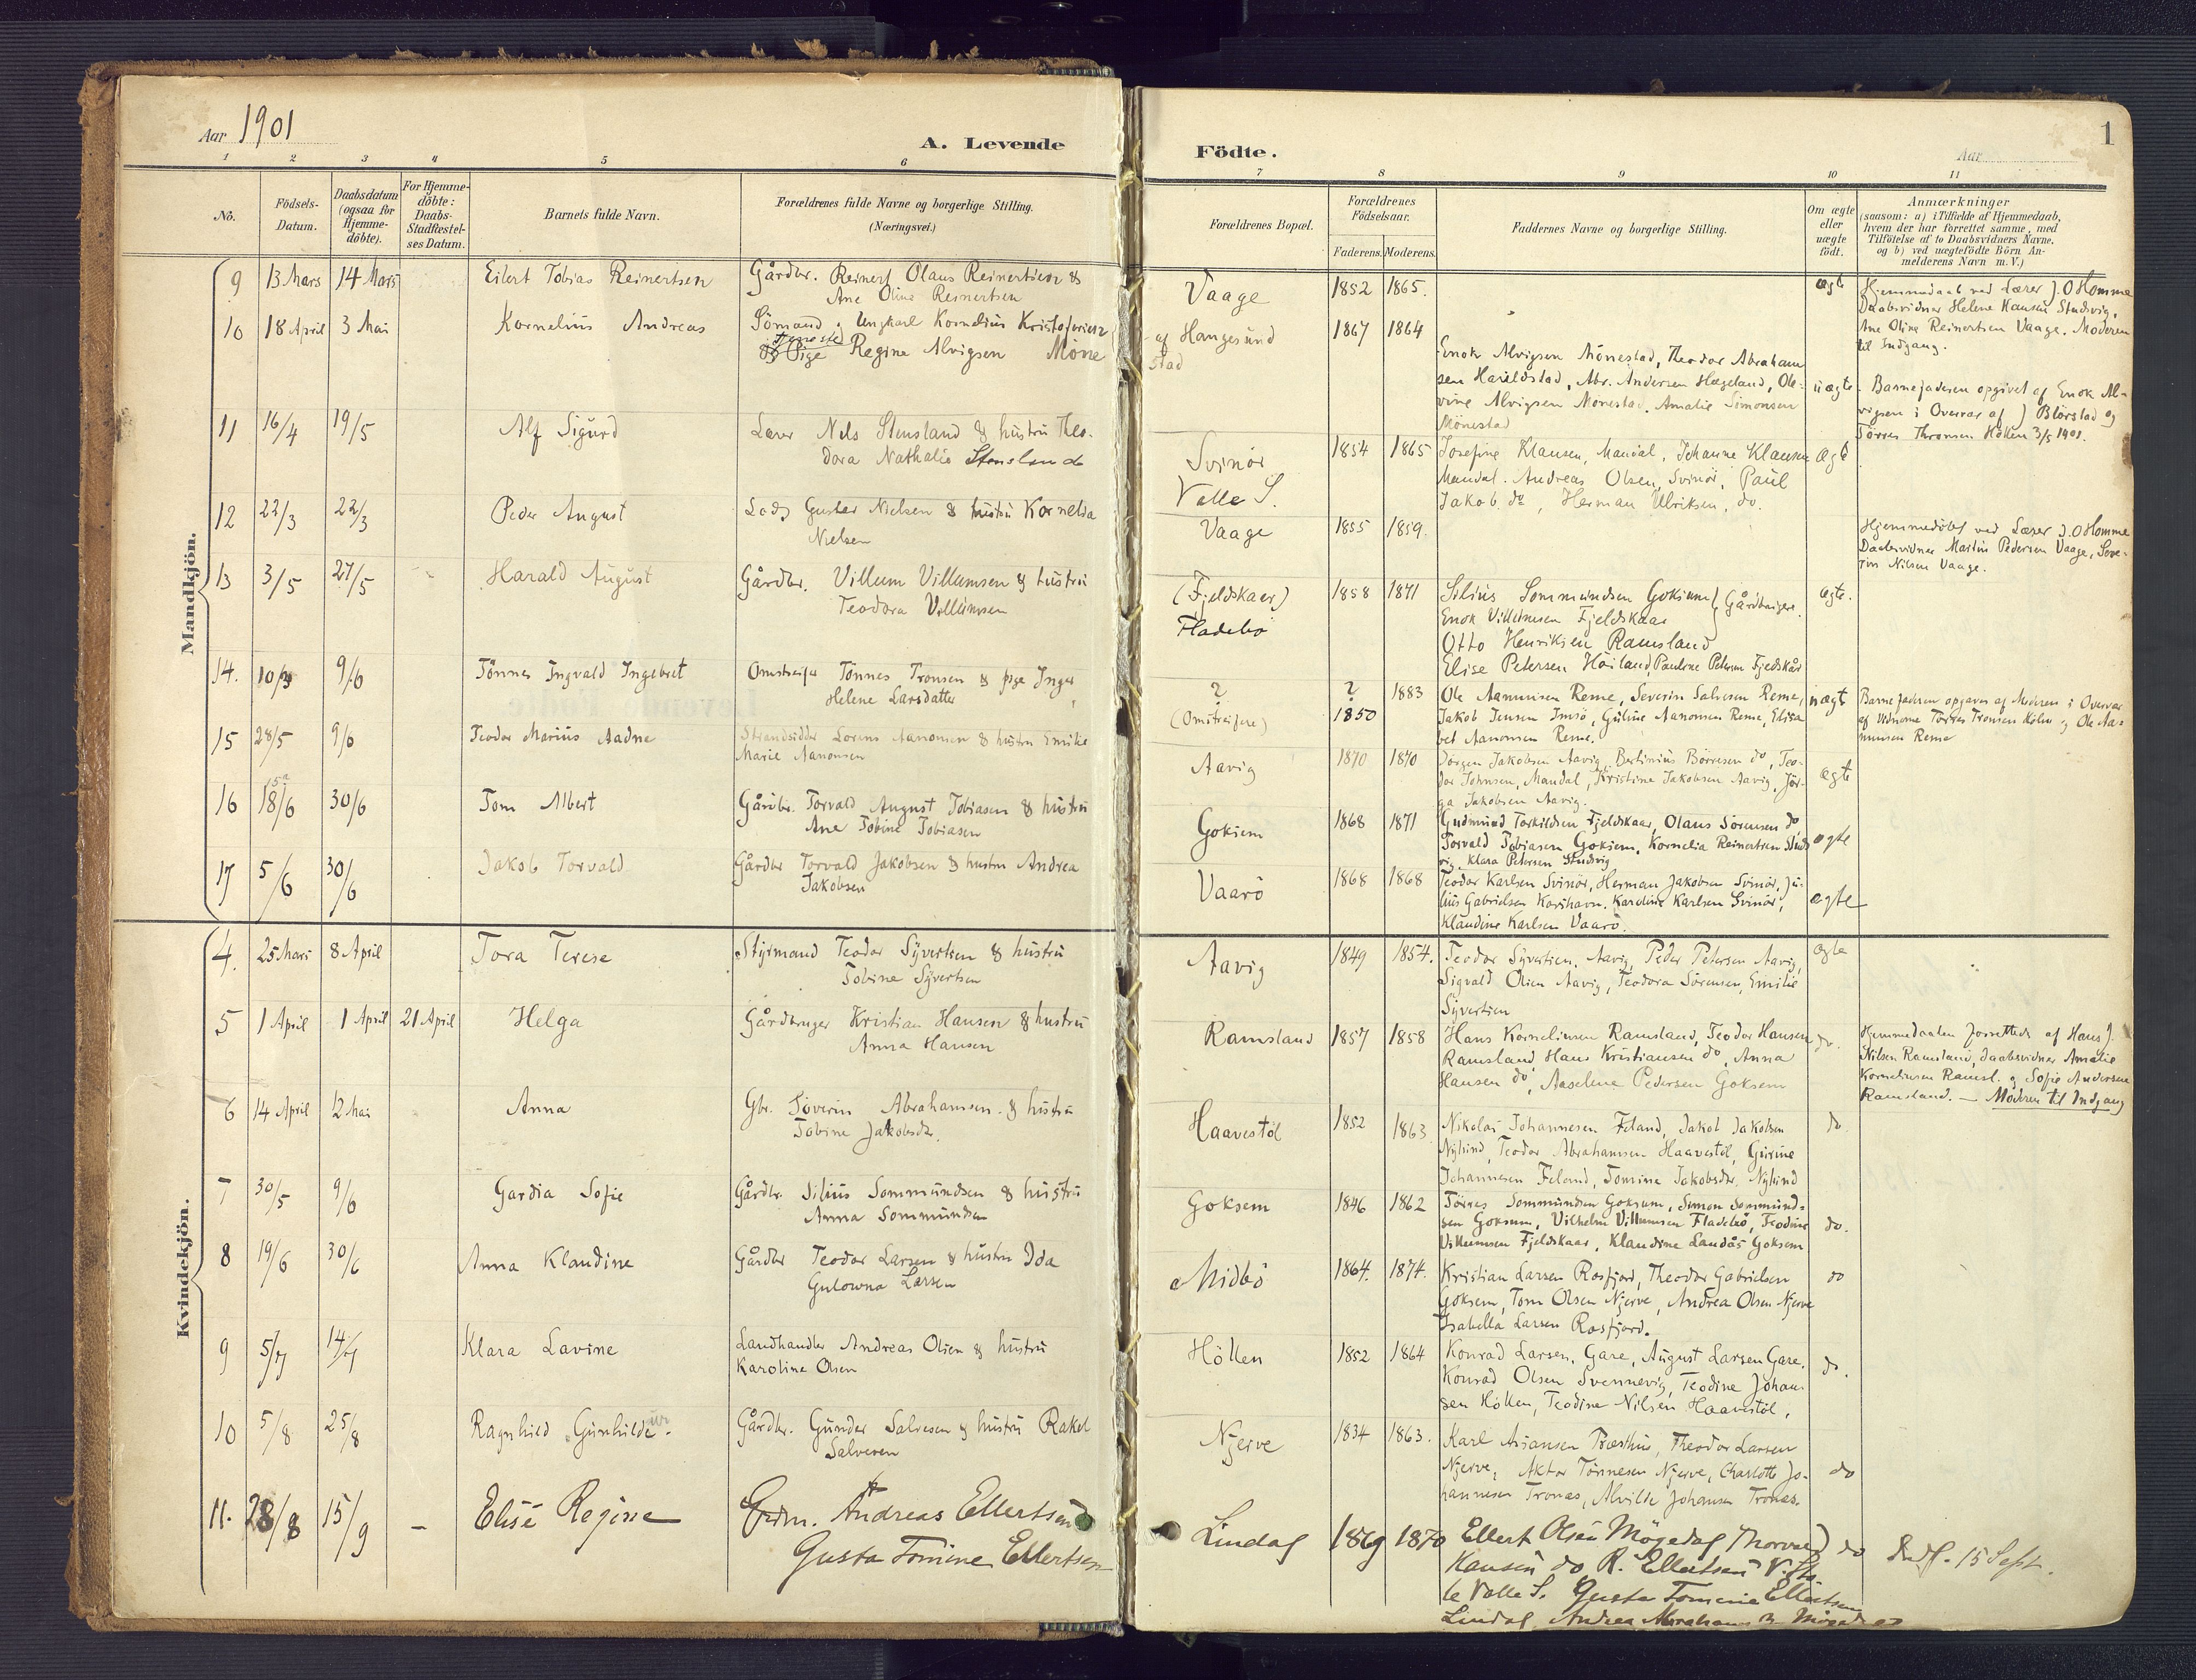 Aar 1901
A. Levende
Födte.
1
Aar
1 2 3 4 5 6 7 8 9 10 11
No.
Födsels-
Datum.
Daabsdatum
(ogsaa for
Hjemme-
döbte).
For Hjemme-
döbte:
Daabs-
Stadfæstel-
ses Datum.
Barnets fulde Navn.
Forældrenes fulde Navne og borgerlige Stilling.
(Næringsvei.)
Forældrenes Bopæl.
Forældrenes
Födselsaar.
Faderens. Moderens.
Faddernes Navne og borgerlige Stilling.
Om ægte
eller
uægte
födt.
Anmærkninger
(saasom: a) i Tilfælde af Hjemmedaab,
hvem der har forrettet samme, med
Tilföielse af to Daabsvidners Navne,
og b) ved uægtefödte Börn An-
melderens Navn m. V.)
Mandkjön.
9 13 Mars 14 Mars Eilert Tobias Reinertsen Gårdbr. Reinert Olaus Reinertsen &
Ane Oline Reinertsen
Vaage 1852 1865. ægte
Hjemmedaab ved Lærer J. O Homme
Daabsvidner Helene Hansen Studvig,
Ane Oline Reinertsen Vaage. Moderen
til Indgang.
10 18 April 3 Mai Kornelius Andreas Sömand og Ungkarl Kornelius Kristofersen
Pige Regine Alvigsen Möne
af Haugesund
stad
1867 1864
Enok Alvigsen Mönestad, Theodor Abraham
sen Harildstad, Abr. Andersen Hægeland, Ole-
vine Alvigsen Mönestad. Amalie Simonsen
Mönestad
uægte
Barnefaderen opgivet af Enok Al-
vigsen i Overvær af J Blörstad og
Törres Thronsen Hölken 3/5 1901.
11 16/4 19/5 Alf Sigurd Lærer Nils Stensland & hustru Theo-
dora Nathalie Stensland
Svinör
Valle S.
1854 1865
Josefine Klausen, Mandal, Johanne Klausen
Mandal. Andreas Olsen, Svinör, Paul
Jakob. do, Herman Ulriksen, do.
ægte
12 22/3 22/3 Peder August Lods Gustav Nielsen & hustru Kornelia
Nielsen
Vaage 1855 1859.
Hjemmedöbt ved Lærer J. O Homme
Daabsvidner Martin Pedersen Vaage, Seve-
rin Nilsen Vaage.
13 3/5 27/5 Harald August Gårdbr. Villum Villumsen & hustru
Teodora Villumsen
(Fjeldskaer)
Fladebö
1858 1871
Silius Sommundsen Goksem
Enok Villumsen Fjeldskaar } Gårdbrugere
Otto Henriksen Ramsland
Elise Petersen Höiland, Pauline Petersen Fjedskår
ægte.
14. 10/3 9/6 Tönnes Ingvald Ingebret Omstreifer Tönnes Tronsen & pige Inger
Helene Larsdatter
?
(Omstreifere)
?
1850 1883
Ole Aanunsen Reme, Severin Salvesen Reme,
Jakob Jensen Imsö, Guline Aanonsen Reme, Elisa
bet Aanonsen Reme.
uægt
Barnefaderen opgaves af Moderen i Overvær
af Vidnerne Törres Tronsen Hölen og Ole Aa-
nunsen Reme
15 28/5 9/6 Teodor Marius Aadne Strandsidder Lorens Aanonsen & hustru Emilie
Marie Aanonsen
Aavig 1870 1870
Jörgen Jakobsen Aavig, Bertinius Börresen do, Teo-
dor Johnsen, Mandal, Kristine Jakobsen Aavig, Jör-
ga Jakobsen Aavig.
ægte
16 18/6 30/6 Tom Albert Gårdbr. Torvald August Tobiasen & hustru
Ane Tobine Tobiasen
Goksem 1868 1871
Gudmund Torkildsen Fjeldskaar, Olaus Sörensen do,
Torvald Tobiasen Goksem, Kornelia Reinertsen Stud
vig, Klara Petersen Studvig
ægte
17 5/6 30/6 Jakob Torvald Gårdbr Torvald Jakobsen & hustru Andrea
Jakobsen
Vaarö 1868 1868
Teodor Karlsen Svinör, Herman Jakobsen Svinör, Ju-
lius Gabrielsen Korshavn. Karoline Karlsen Svinör,
Klaudine Karlsen Vaarö.
ægte
Kvindekjön.
4. 25 Mars 8 April Tora Terese Styrmand Teodor Syvertsen & hustru
Tobine Syvertsen
Aavig 1849 1854.
Teodor Syvertsen, Aavig, Peder Petersen Aavig,
Sigvald Olsen Aavig, Teodora Sörensen, Emilie
Syvertsen
ægte
5 1 April 1 April 21 April Helga Gårdbruger Kristian Hansen & hustru
Anna Hansen
Ramsland 1857 1858
Hans Korneliusen Ramsland, Teodor Hansen
Ramsland, Hans Kristiansen do, Anna
Hansen do, Aaselene Pedersen Goksem
do.
Hjemmedaaben forrettede af Hans J.
Nilsen Ramsland, daabsvidner Amalie
Korneliusen Ramsl. og Sofie Andersen
Ramsland. — Moderen til Indgang
6 14 April 12 Mai Anna Gbr. Söverin Abrahamsen & hustru
Tobine Jakobsdr.
Haavestöl 1852 1863
Nikolai Johannesen Föland, Jakob Jakobsen
Nylund, Teodor Abrahamsen Haavestöl, Gurine
Johannesen Föland, Tomine Jakobsdr. Nylund
do.
7 30/5 9/6 Gardia Sofie Gårdbr. Silius Sommundsen & hustru
Anna Sommundsen
Goksem 1846 1862
Törres Sommundsen Goksem, Simon Sommund-
sen Goksem, Vilhelm Villumsen Fladebö, Teodine
Villumsen Fjeldskaar, Klaudine Landås Goksem
do.
8 19/6 30/6 Anna Klaudine Gårdbr Teodor Larsen & hustru Ida
Gulowna Larsen
Midbö 1864. 1874.
Kristian Larsen Rosfjord, Theodor Gabrielsen
Goksem, Tom Olsen Njerve, Andrea Olsen Njerve
Isabella Larsen Rosfjord.
do
9 5/7 14/7 Klara Lavine Landhandler Andreas Olsen & hustru
Karoline Olsen
Hölken 1852 1864
Konrad Larsen, Gare, August Larsen Gare,
Konrad Olsen Svennevig, Teodine Johan-
sen Hölken, Teodine Nilsen Haavestöl,
do.
10 5/8 25/8 Ragnhild Gunhilde Gårdbr. Gunder Salvesen & hustru Rakel
Salvesen
Njerve 1834 1863.
Karl Asiansen Præsthus, Theodor Larsen
Njerve, Aktor Tönnesen Njerve, Charlotte Jo-
hannesen Tronas, Alvilde Johansen Tronas.
do
11. 28/8 15/9 – Elise Regine Grdm. Andreas Ellertsen
Gusta Tomine Ellertsen
Lindal 1869 1870
Ellert Olsen Mögedal, Thorvald
Hansen do R. Ellertsen
Valle S. Gusta Tomine Ellertsen
Lindal, Andrea Abrahamsen Mögedal
do
Indf. 15 Sept.